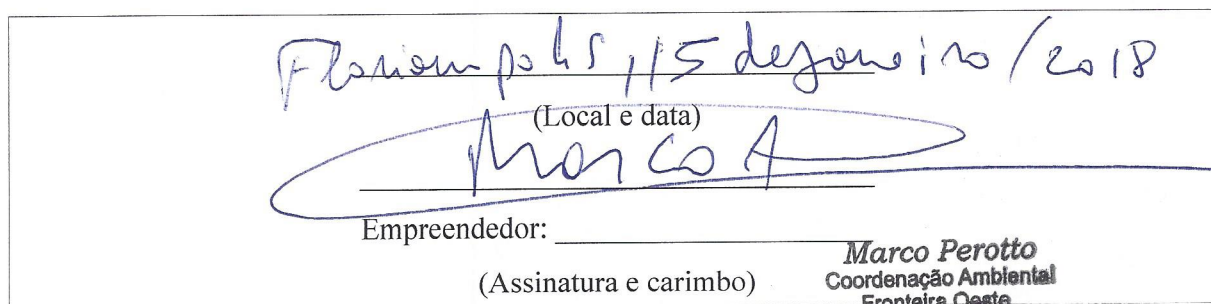 Florianopolis, 15 de janeiro/2018
(Local e data)
Marco A
Empreendedor:
(Assinatura e carimbo)
Marco Perotto
Coordenação Ambiental
Fronteira Oeste